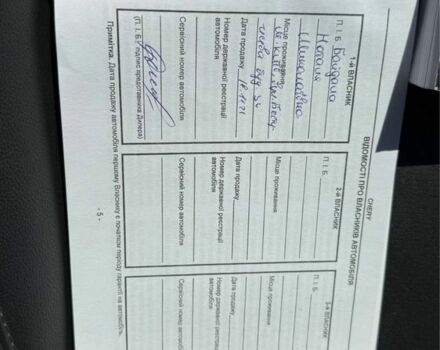 CHERY
ВІДОМОСТІ ПРО ВЛАСНИКІВ АВТОМОБІЛЯ
1-й ВЛАСНИК
П. І. Б.
Місце проживання
Дата продажу
Номер державної реєстрації
автомобіля
Сервісний номер автомобіля
(П. І. Б., підпис представників Дилера)
2-й ВЛАСНИК
П. І. Б.
Місце проживання
Дата продажу
Номер державної реєстрації
автомобіля
Сервісний номер автомобіля
3-й ВЛАСНИК
П. І. Б.
Місце проживання
Дата продажу
Номер державної реєстрації
автомобіля
Сервісний номер автомобіля
Примітка. Дата продажу автомобіля першому Власнику є початком періоду гарантії на автомобіль.
- 5 -